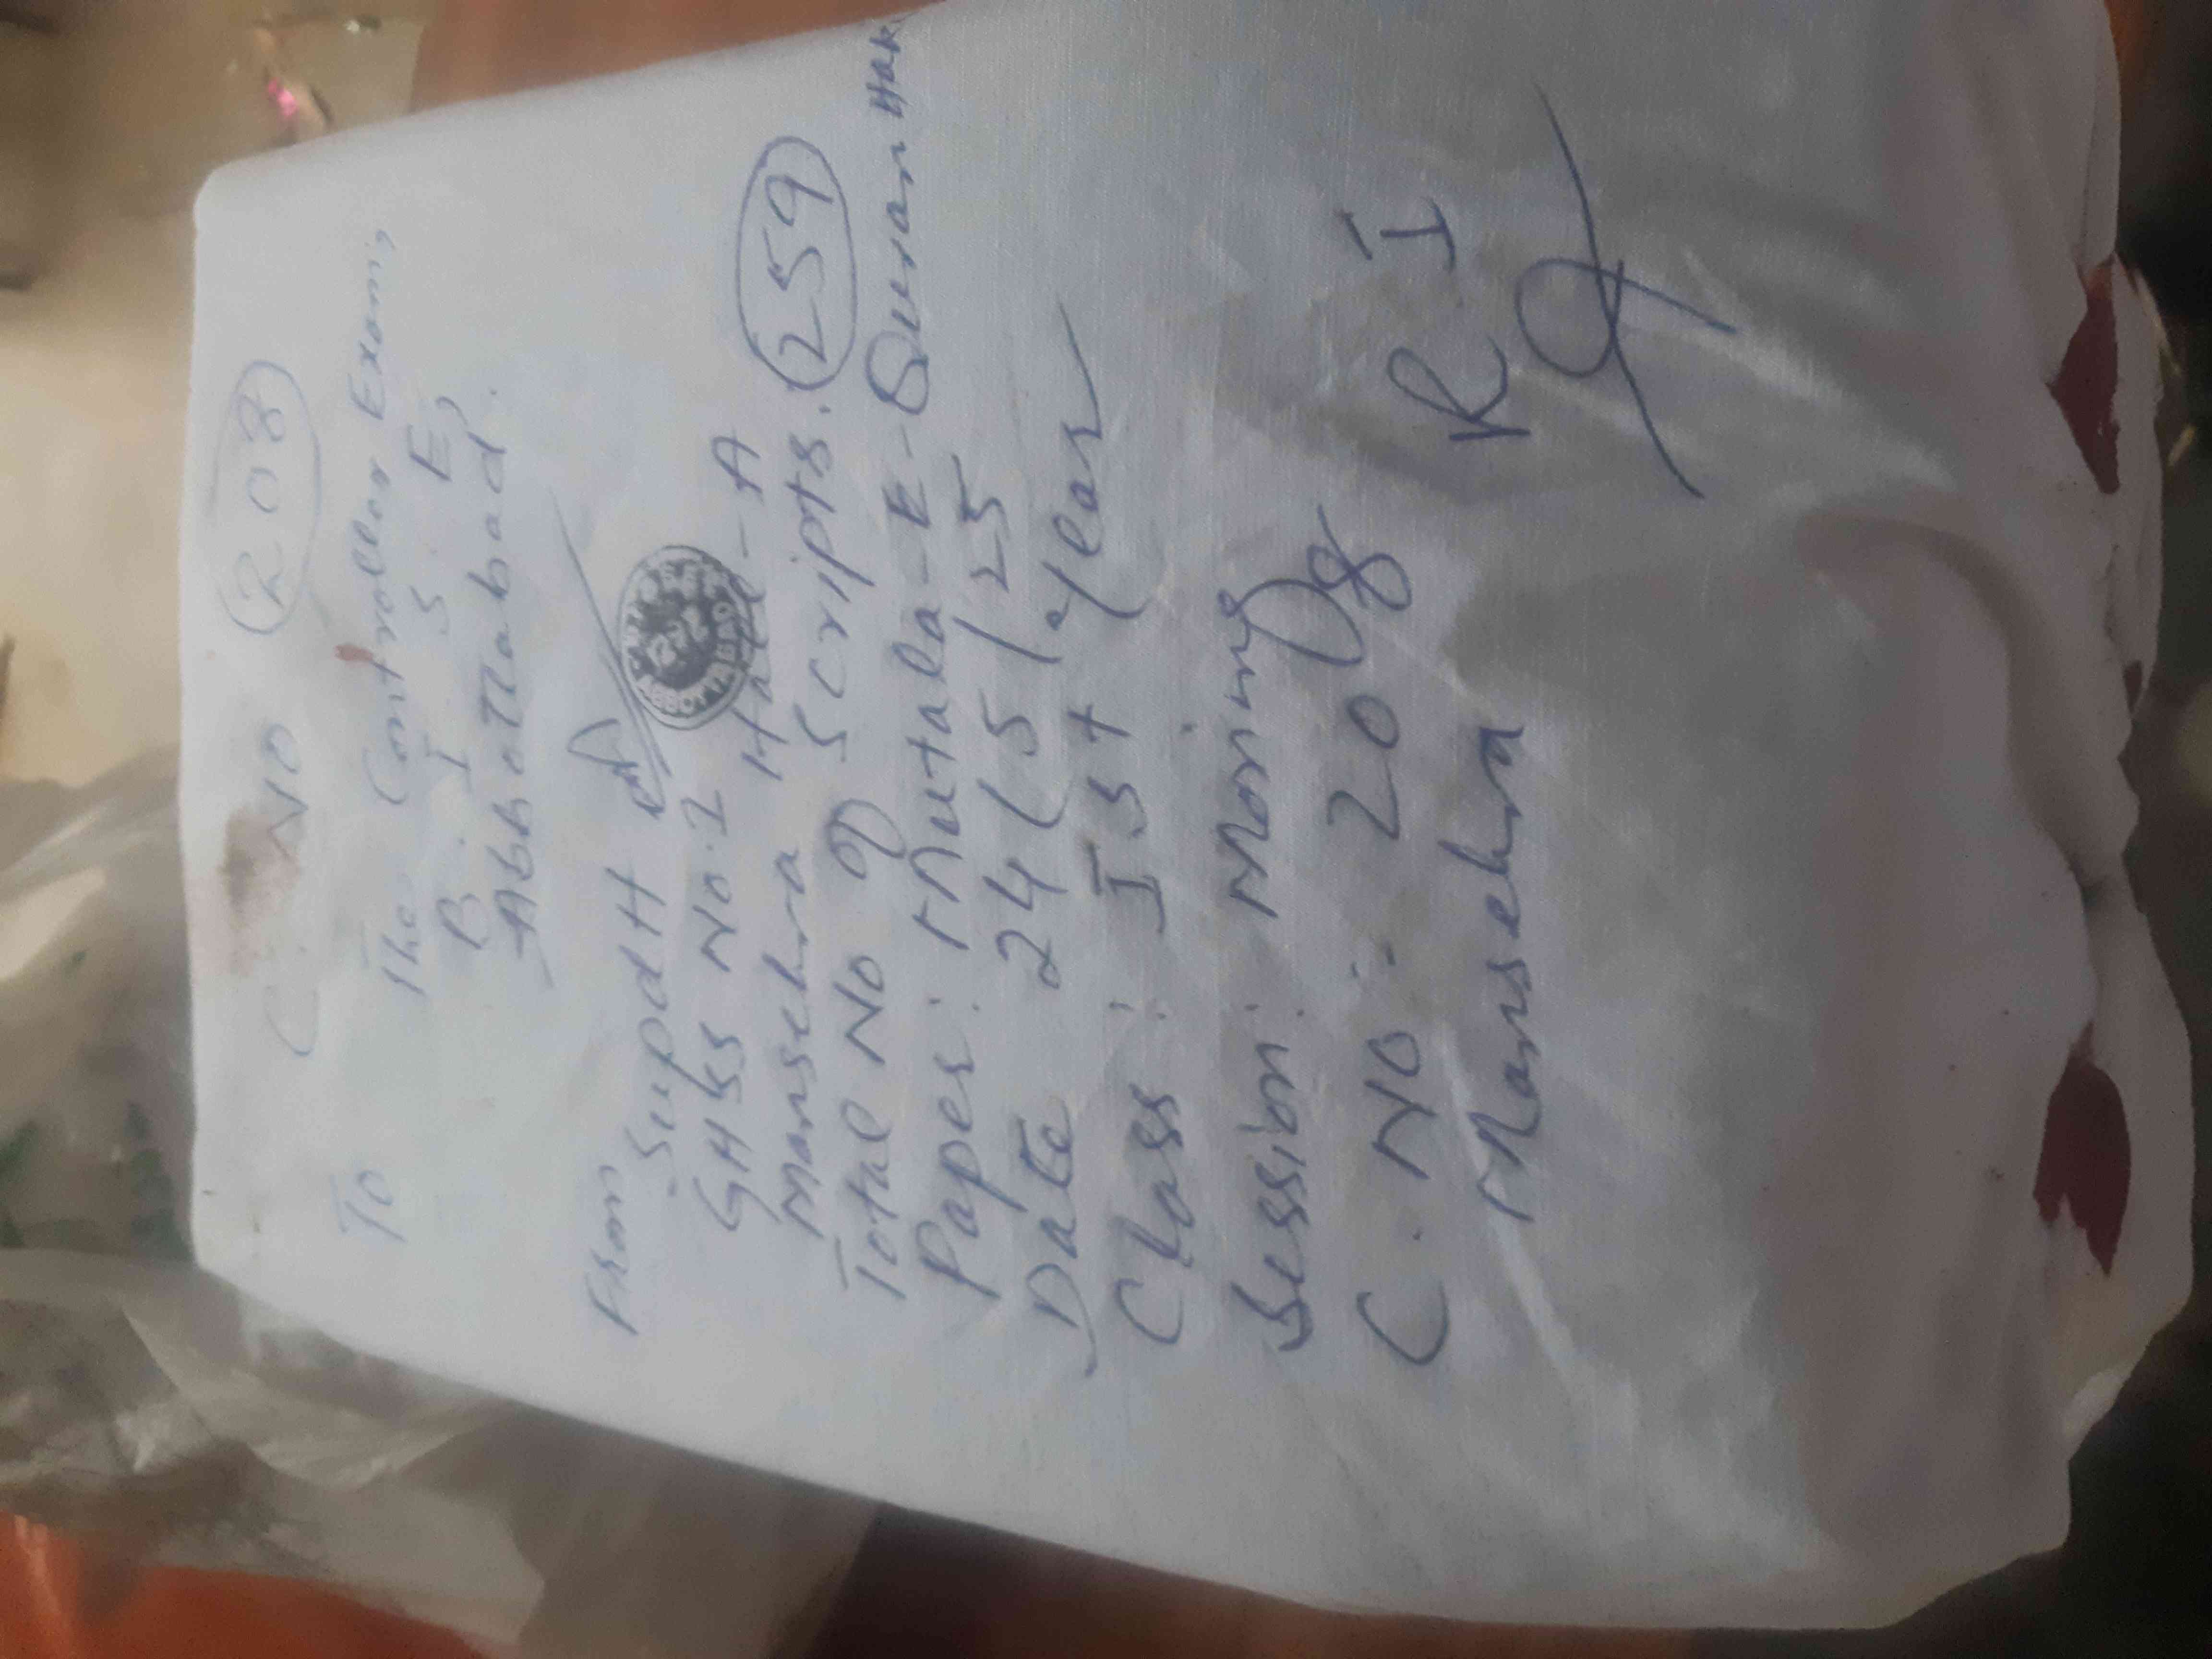 C. No 208
To
The Controller Exams,
B. I. S. E,
Abbottabad.
From
Supdtt
GHSS No.1
Mansehra Hall-A
Total No of Scripts. 259
Paper: Mutala-E-Quran Hak
Date 24/5/25
Class: Ist year
Session: Moring
C. No:- 208
Mansehra
R I